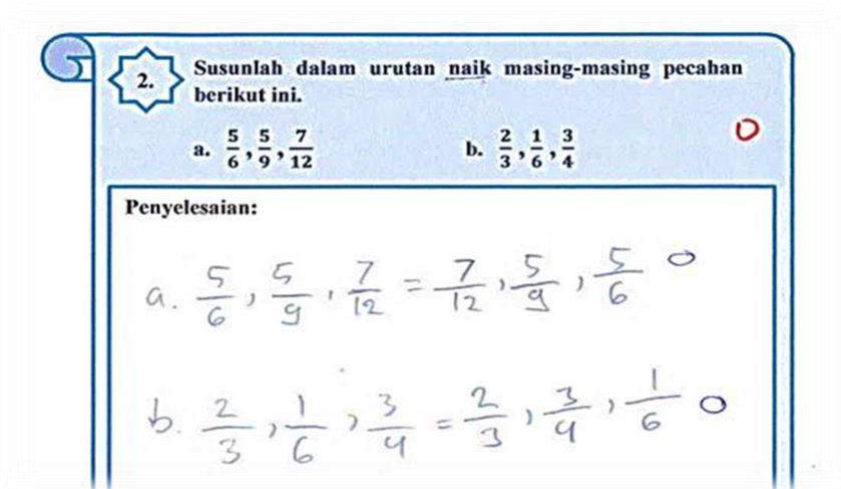 2. Susunlah dalam urutan naik masing-masing pecahan
berikut ini.
a. 5/6, 5/9, 7/12 b. 2/3, 1/6, 3/4
0
Penyelesaian:
a. 5/6, 5/9, 7/12 = 7/12, 5/9, 5/6 0
b. 2/3, 1/6, 3/4 = 2/3, 3/4, 1/6 0